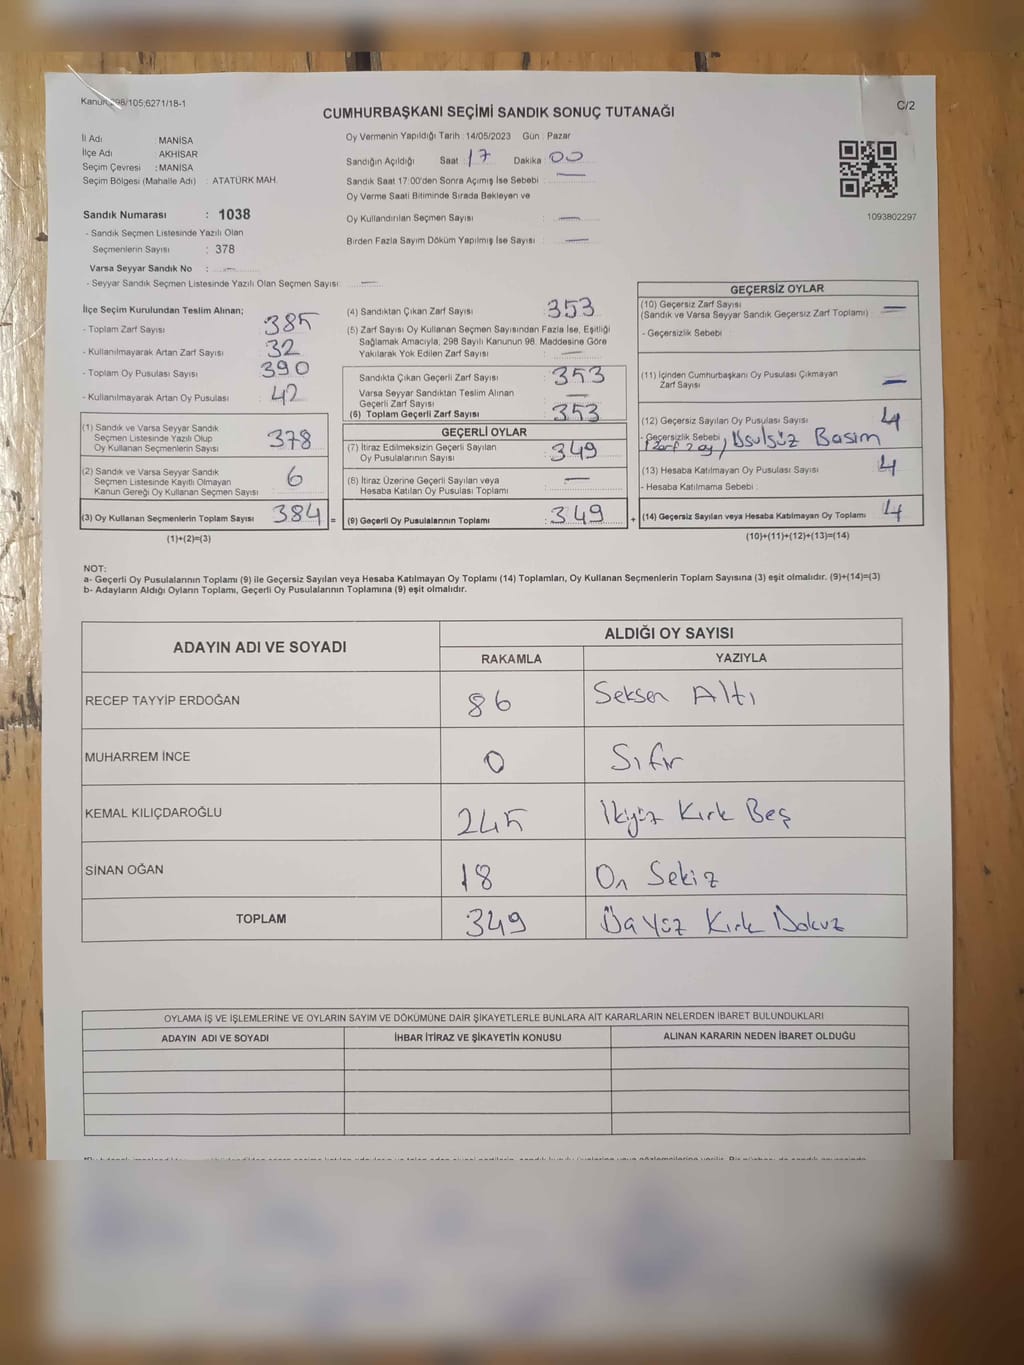 Kanun 298/105;6271/18-1
C/2
CUMHURBAŞKANI SEÇİMİ SANDIK SONUÇ TUTANAĞI
İl Adı : MANİSA
İlçe Adı : AKHİSAR
Seçim Çevresi : MANİSA
Seçim Bölgesi (Mahalle Adı) : ATATÜRK MAH.
Sandık Numarası : 1038
- Sandık Seçmen Listesinde Yazılı Olan
Seçmenlerin Sayısı : 378
Varsa Seyyar Sandık No : —
- Seyyar Sandık Seçmen Listesinde Yazılı Olan Seçmen Sayısı: —
Oy Vermenin Yapıldığı Tarih : 14/05/2023 Gün : Pazar
Sandığın Açıldığı Saat : 17 Dakika : 00
Sandık Saat 17:00'den Sonra Açımış İse Sebebi : —
Oy Verme Saati Bitiminde Sırada Bekleyen ve
Oy Kullandırılan Seçmen Sayısı : —
Birden Fazla Sayım Döküm Yapılmış İse Sayısı : —
1093802297
İlçe Seçim Kurulundan Teslim Alınan;
- Toplam Zarf Sayısı : 385
- Kullanılmayarak Artan Zarf Sayısı : 32
- Toplam Oy Pusulası Sayısı : 390
- Kullanılmayarak Artan Oy Pusulası : 42
(1) Sandık ve Varsa Seyyar Sandık
Seçmen Listesinde Yazılı Olup
Oy Kullanan Seçmenlerin Sayısı : 378
(2) Sandık ve Varsa Seyyar Sandık
Seçmen Listesinde Kayıtlı Olmayan
Kanun Gereği Oy Kullanan Seçmen Sayısı : 6
(3) Oy Kullanan Seçmenlerin Toplam Sayısı : 384 =
(1)+(2)=(3)
(4) Sandıktan Çıkan Zarf Sayısı : 353
(5) Zarf Sayısı Oy Kullanan Seçmen Sayısından Fazla İse, Eşitliği
Sağlamak Amacıyla, 298 Sayılı Kanunun 98. Maddesine Göre
Yakılarak Yok Edilen Zarf Sayısı : —
Sandıkta Çıkan Geçerli Zarf Sayısı : 353
Varsa Seyyar Sandıktan Teslim Alınan
Geçerli Zarf Sayısı : —
(6) Toplam Geçerli Zarf Sayısı : 353
GEÇERLİ OYLAR
(7) İtiraz Edilmeksizin Geçerli Sayılan
Oy Pusulalarının Sayısı : 349
(8) İtiraz Üzerine Geçerli Sayılan veya
Hesaba Katılan Oy Pusulası Toplamı : —
(9) Geçerli Oy Pusulalarının Toplamı : 349 +
GEÇERSİZ OYLAR
(10) Geçersiz Zarf Sayısı
(Sandık ve Varsa Seyyar Sandık Geçersiz Zarf Toplamı) : —
- Geçersizlik Sebebi :
(11) İçinden Cumhurbaşkanı Oy Pusulası Çıkmayan
Zarf Sayısı : —
(12) Geçersiz Sayılan Oy Pusulası Sayısı : 4
- Geçersizlik Sebebi : 1 zarf 2 oy, Usulsüz Basım
(13) Hesaba Katılmayan Oy Pusulası Sayısı : 4
- Hesaba Katılmama Sebebi :
(14) Geçersiz Sayılan veya Hesaba Katılmayan Oy Toplamı : 4
(10)+(11)+(12)+(13)=(14)
NOT:
a- Geçerli Oy Pusulalarının Toplamı (9) ile Geçersiz Sayılan veya Hesaba Katılmayan Oy Toplamı (14) Toplamları, Oy Kullanan Seçmenlerin Toplam Sayısına (3) eşit olmalıdır. (9)+(14)=(3)
b- Adayların Aldığı Oyların Toplamı, Geçerli Oy Pusulalarının Toplamına (9) eşit olmalıdır.
ADAYIN ADI VE SOYADI
ALDIĞI OY SAYISI
RAKAMLA YAZIYLA
RECEP TAYYİP ERDOĞAN 86 Seksen Altı
MUHARREM İNCE 0 Sıfır
KEMAL KILIÇDAROĞLU 245 İkiyüz Kırk Beş
SİNAN OĞAN 18 On Sekiz
TOPLAM 349 Üçyüz Kırk Dokuz
OYLAMA İŞ VE İŞLEMLERİNE VE OYLARIN SAYIM VE DÖKÜMÜNE DAİR ŞİKAYETLERLE BUNLARA AİT KARARLARIN NELERDEN İBARET BULUNDUKLARI
ADAYIN ADI VE SOYADI İHBAR İTİRAZ VE ŞİKAYETİN KONUSU ALINAN KARARIN NEDEN İBARET OLDUĞU